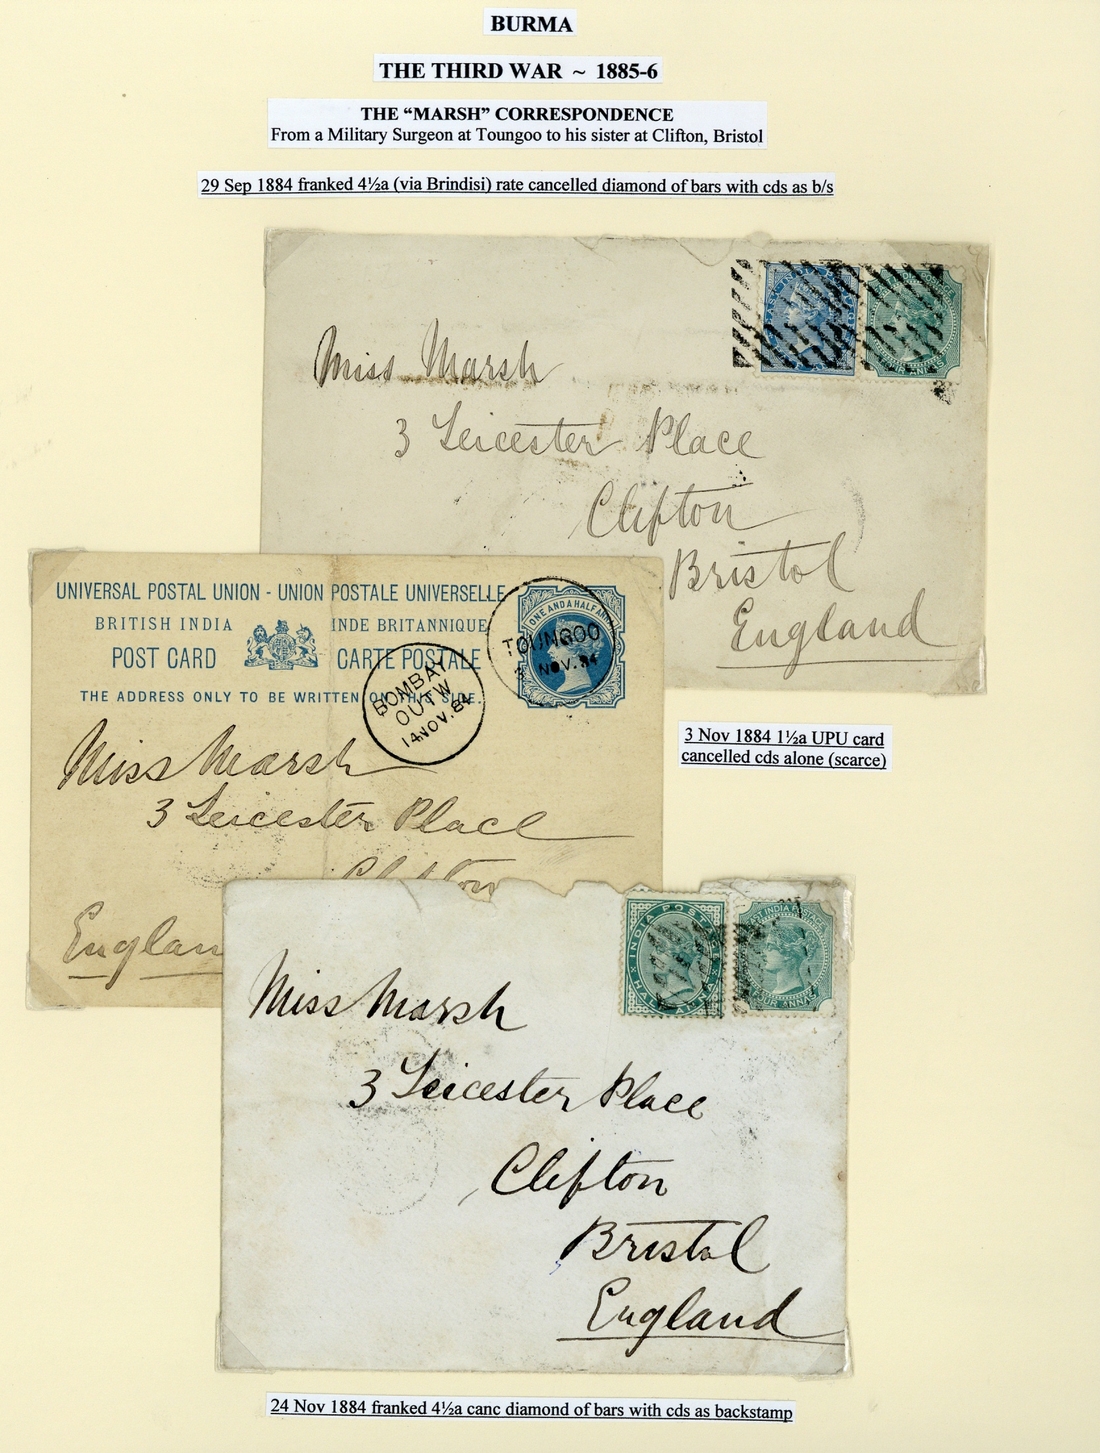 BURMA
THE THIRD WAR ~ 1885-6
THE “MARSH” CORRESPONDENCE
From a Military Surgeon at Toungoo to his sister at Clifton, Bristol
29 Sep 1884 franked 4½a (via Brindisi) rate cancelled diamond of bars with cds as b/s
EAST INDIA
Miss Marsh
3 Leicester Place
Clifton
Bristol
England
UNIVERSAL POSTAL UNION - UNION POSTALE UNIVERSELLE
BRITISH INDIA INDE BRITANNIQUE
POST CARD CARTE POSTALE
THE ADDRESS ONLY TO BE WRITTEN ON THIS SIDE.
ONE AND A HALF AN
TOUNGOO
3 NOV. 84
BOMBAY
OUTW
14 NOV. 84
Miss Marsh
3 Leicester Place
Clifton
England
3 Nov 1884 1½a UPU card
cancelled cds alone (scarce)
INDIA POSTAGE
HALF ANNA
EAST INDIA POSTAGE
FOUR ANNAS
Miss Marsh
3 Leicester Place
Clifton
Bristol
England
24 Nov 1884 franked 4½a canc diamond of bars with cds as backstamp